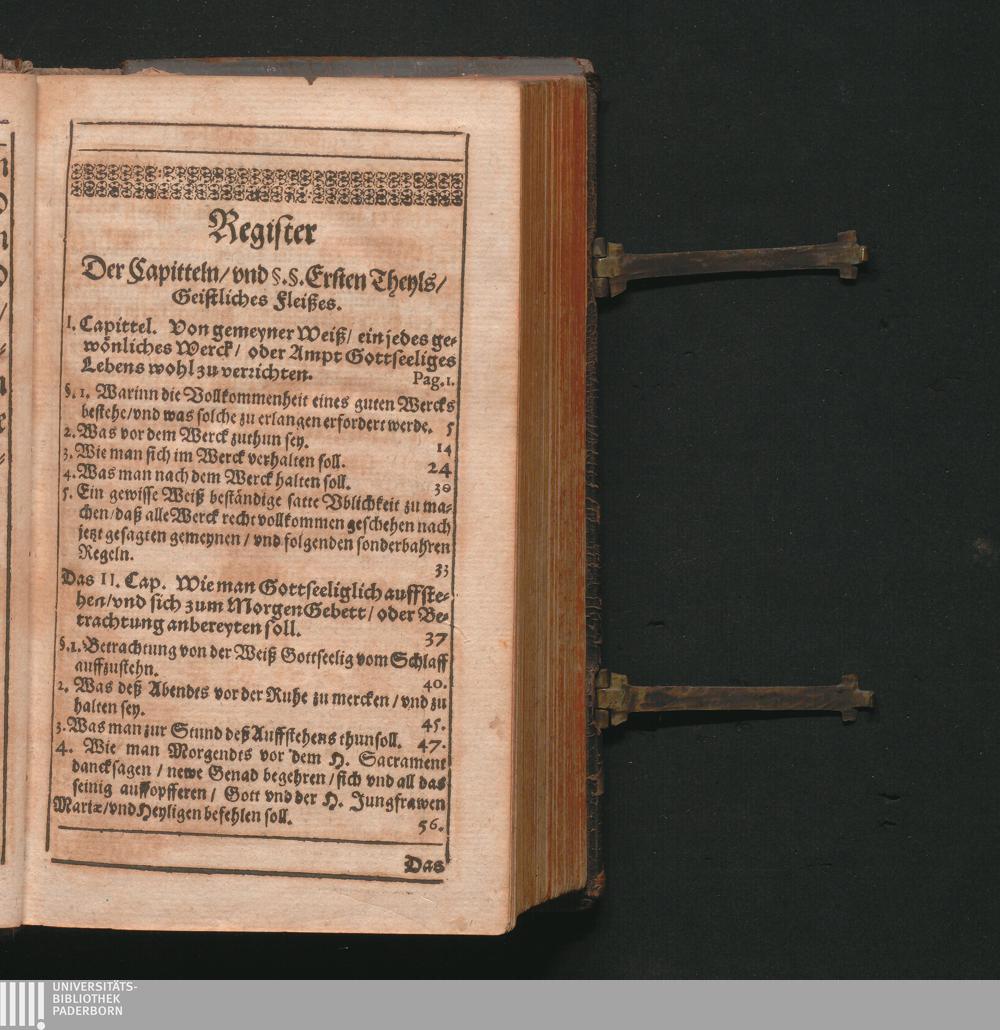 Register
Der Capitteln/ vnd §.§. Ersten Theyls/
Geistliches Fleißes.
I. Capittel. Von gemeyner Weiß/ ein jedes ge-
wönliches Werck/ oder Ampt Gottseeliges
Lebens wohl zu verrichten. Pag. 1.
§. 1. Warinn die Vollkommenheit eines guten Wercks
bestehe/vnd was solche zu erlangen erfordert werde. 5
2. Was vor dem Werck zuthun sey. 14
3. Wie man sich im Werck verhalten soll. 24
4. Was man nach dem Werck halten soll. 30
5. Ein gewisse Weiß beständige satte Vblichkeit zu ma-
chen/daß alle Werck recht vollkommen geschehen nach
jetzt gesagten gemeynen / vnd folgenden sonderbahren
Regeln. 33
Das II. Cap. Wie man Gottseeliglich auffste-
hen/vnd sich zum MorgenGebett/ oder Be-
trachtung anbereyten soll. 37
§.1. Betrachtung von der Weiß Gottseelig vom Schlaff
auffzustehn. 40.
2. Was deß Abendts vor der Ruhe zu mercken / vnd zu
halten sey. 45.
3. Was man zur Stund deß Auffstehens thun soll. 47.
4. Wie man Morgendts vor dem H. Sacrament
dancksagen / newe Genad begehren / sich vnd all das
seinig auffopfferen / Gott vnd der H. Jungfrawen
Mariæ/vnd Heyligen befehlen soll. 56.
Das
UNIVERSITÄTS-
BIBLIOTHEK
PADERBORN